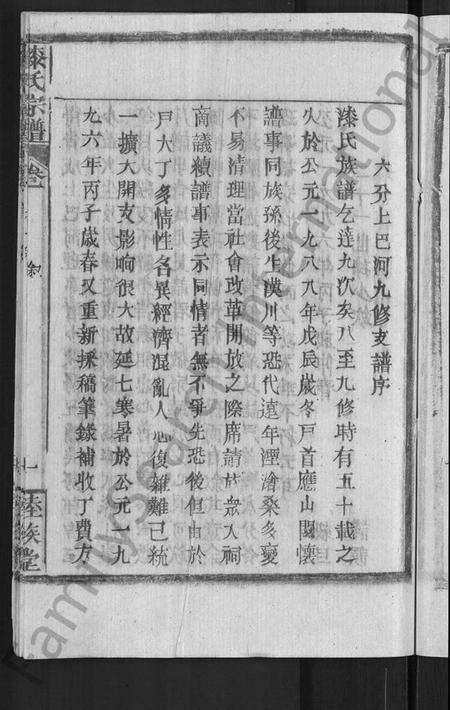 六分上巴河九修支譜序
漆氏族譜乞達九次矣八至九修時有五十載之
久於公元一九八八年戊辰歲冬戸首應山關懷
譜事同族孫後生漢川等恐代遠年湮滄桑多變
不易清理當社會改革開放之際席請於眾入祠
商議續譜事表示同情者無不爭先恐後但由於
戸大丁多情性各異經濟混亂人心復雜難已統
一擴大開支影响很大故延七寒暑於公元一九
九六年丙子歲春又重新採稿筆錄補收丁費方
漆氏宗譜
卷
敘
一
FamilySearch International